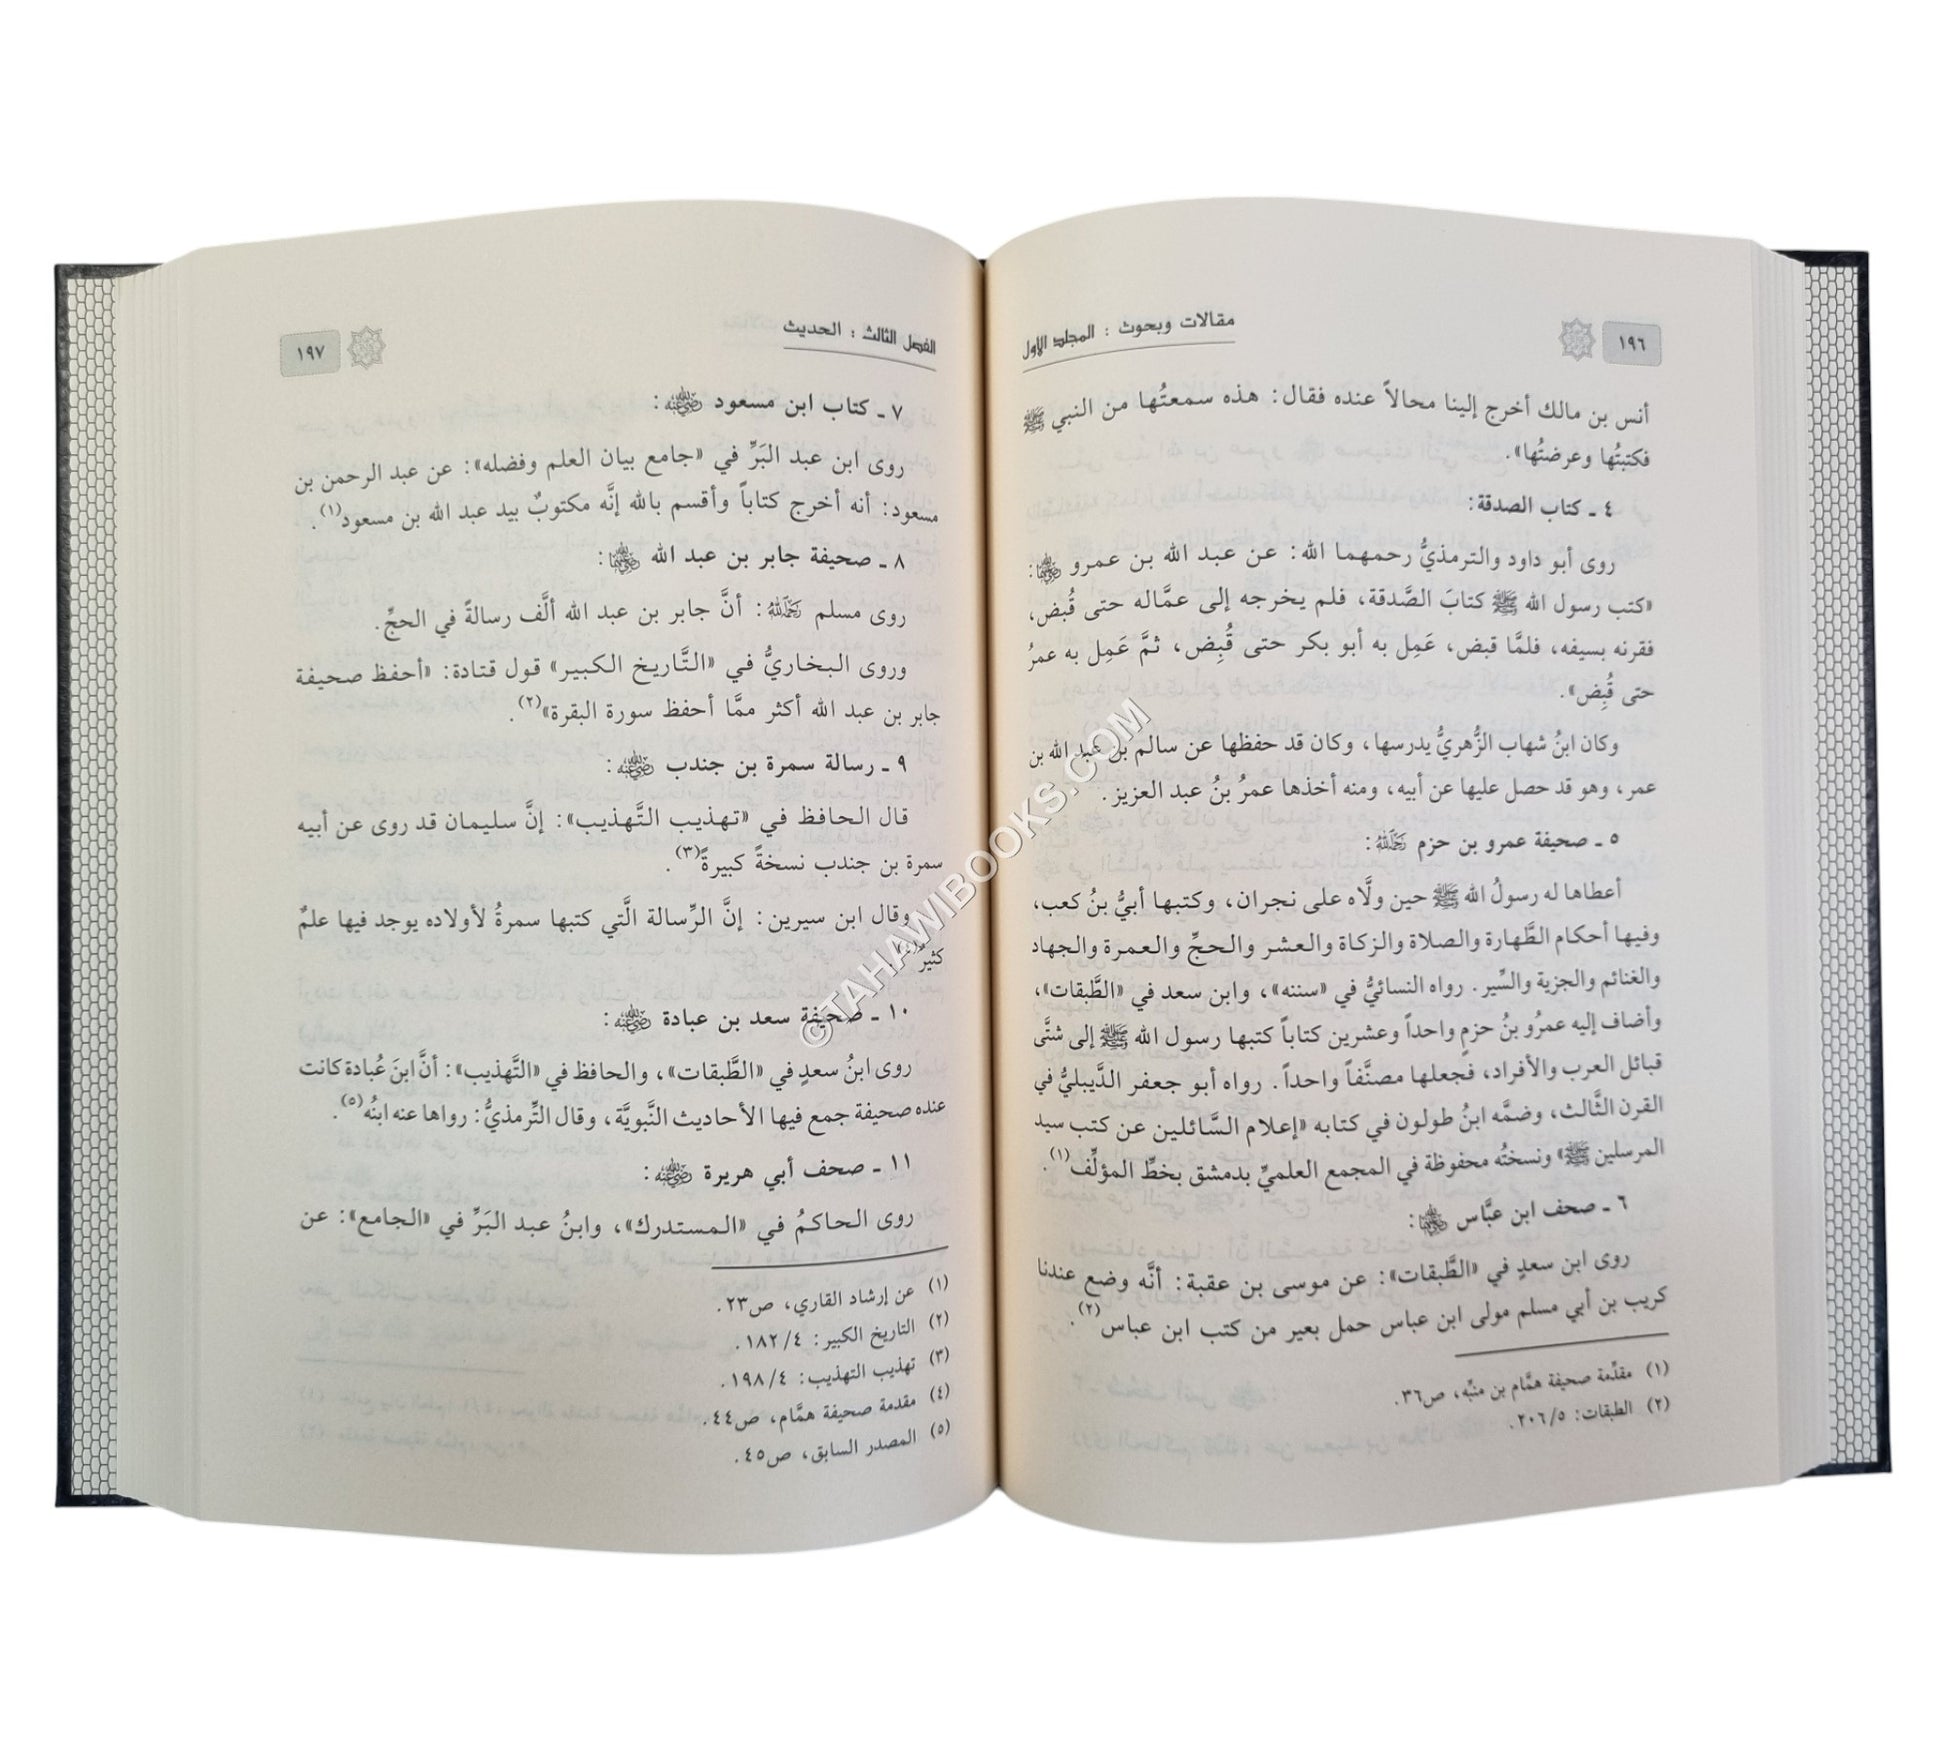 ١٩٦
مقالات وبحوث : المجلد الأول
أنس بن مالك أخرج إلينا محالاً عنده فقال: هذه سمعتُها من النبي ﷺ
فكتبتُها وعرضتُها».
٤ ـ كتاب الصدقة:
روى أبو داود والترمذيُّ رحمهما الله: عن عبد الله بن عمرو رضي الله عنهما:
«كتب رسول الله ﷺ كتابَ الصَّدقة، فلم يخرجه إلى عمَّاله حتى قُبض،
فقرنه بسيفه، فلمَّا قبض، عَمِل به أبو بكر حتى قُبِض، ثمَّ عَمِل به عمرُ
حتى قُبِض».
وكان ابنُ شهاب الزُّهريُّ يدرسها، وكان قد حفظها عن سالم بن عبد الله بن
عمر، وهو قد حصل عليها عن أبيه، ومنه أخذها عمرُ بنُ عبد العزيز.
٥ ـ صحيفة عمرو بن حزم رحمه الله:
أعطاها له رسولُ الله ﷺ حين ولَّاه على نجران، وكتبها أبيُّ بنُ كعب،
وفيها أحكام الطَّهارة والصلاة والزكاة والعشر والحجِّ والعمرة والجهاد
والغنائم والجزية والسِّير. رواه النسائيُّ في «سننه»، وابن سعد في «الطَّبقات»،
وأضاف إليه عمرُو بنُ حزمٍ واحداً وعشرين كتاباً كتبها رسول الله ﷺ إلى شتَّى
قبائل العرب والأفراد، فجعلها مصنَّفاً واحداً. رواه أبو جعفر الدَّيبليُّ في
القرن الثَّالث، وضمَّه ابنُ طولون في كتابه «إعلام السَّائلين عن كتب سيد
المرسلين ﷺ» ونسختُه محفوظة في المجمع العلميِّ بدمشق بخطِّ المؤلِّف(١).
٦ ـ صحف ابن عبَّاس رضي الله عنهما:
روى ابن سعدٍ في «الطَّبقات»: عن موسى بن عقبة: أنَّه وضع عندنا
كريب بن أبي مسلم مولى ابن عباس حمل بعير من كتب ابن عباس(٢).
(١) مقدِّمة صحيفة همَّام بن منبِّه، ص٣٦.
(٢) الطبقات: ٢٠٦/٥.
الفصل الثالث : الحديث
١٩٧
٧ ـ كتاب ابن مسعود رضي الله عنه:
روى ابن عبد البَرِّ في «جامع بيان العلم وفضله»: عن عبد الرحمن بن
مسعود: أنه أخرج كتاباً وأقسم بالله إنَّه مكتوبٌ بيد عبد الله بن مسعود(١).
٨ ـ صحيفة جابر بن عبد الله رضي الله عنهما:
روى مسلم رحمه الله: أنَّ جابر بن عبد الله ألَّف رسالةً في الحجِّ.
وروى البخاريُّ في «التَّاريخ الكبير» قول قتادة: «أحفظ صحيفة
جابر بن عبد الله أكثر ممَّا أحفظ سورة البقرة»(٢).
٩ ـ رسالة سمرة بن جندب رضي الله عنه:
قال الحافظ في «تهذيب التَّهذيب»: إنَّ سليمان قد روى عن أبيه
سمرة بن جندب نسخةً كبيرةً(٣).
وقال ابن سيرين: إنَّ الرِّسالة الَّتي كتبها سمرةُ لأولاده يوجد فيها علمٌ
كثيرٌ(٤).
١٠ ـ صحيفة سعد بن عبادة رضي الله عنه:
روى ابنُ سعدٍ في «الطَّبقات»، والحافظ في «التَّهذيب»: أنَّ ابنَ عُبادة كانت
عنده صحيفة جمع فيها الأحاديث النَّبويَّة، وقال التِّرمذيُّ: رواها عنه ابنُه(٥).
١١ ـ صحف أبي هريرة رضي الله عنه:
روى الحاكمُ في «المستدرك»، وابنُ عبد البَرِّ في «الجامع»: عن
(١) عن إرشاد القاري، ص٢٣.
(٢) التاريخ الكبير: ١٨٢/٤.
(٣) تهذيب التهذيب: ١٩٨/٤.
(٤) مقدمة صحيفة همَّام، ص٤٤.
(٥) المصدر السابق، ص٤٥.
©TAHAWIBOOKS.COM